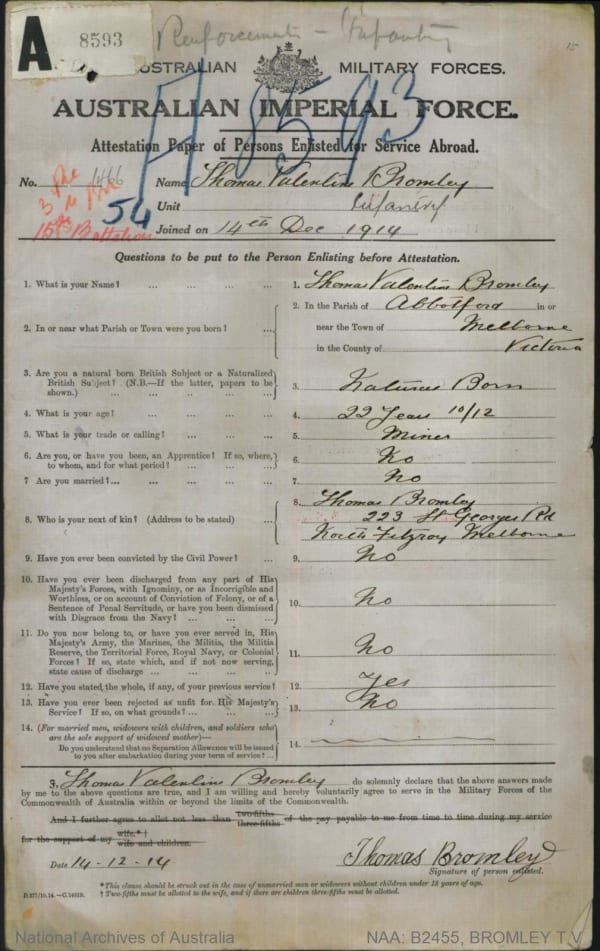 A 8593
Reinforcements - Infantry
15
AUSTRALIAN MILITARY FORCES.
AUSTRALIAN IMPERIAL FORCE.
A 8593
Attestation Paper of Persons Enlisted for Service Abroad.
No. 1466 Name Thomas Valentine Bromley
54 Unit Infantry
15th Battalion
Joined on 14th Dec 1914
Questions to be put to the Person Enlisting before Attestation.
1. What is your Name? ... ... ... ... 1. Thomas Valentine Bromley
2. In or near what Parish or Town were you born? ... 2. In the Parish of Abbotford in or
near the Town of Melborne
in the County of Victoria
3. Are you a natural born British Subject or a Naturalized
British Subject? (N.B.—If the latter, papers to be
shown.) ... ... ... ... 3. Natural Born
4. What is your age? ... ... ... ... 4. 22 Years 10/12
5. What is your trade or calling? ... ... ... 5. Miner
6. Are you, or have you been, an Apprentice? If so, where,
to whom, and for what period? ... ... ... 6. No
7 Are you married?... ... ... ... ... 7. No
8. Who is your next of kin? (Address to be stated) ... 8. Thomas Bromley
223 St Georges Rd
North Fitzroy Melborne
9. Have you ever been convicted by the Civil Power? ... 9. No
10. Have you ever been discharged from any part of His
Majesty's Forces, with Ignominy, or as Incorrigible and
Worthless, or on account of Conviction of Felony, or of a
Sentence of Penal Servitude, or have you been dismissed
with Disgrace from the Navy? ... ... ... 10. No
11. Do you now belong to, or have you ever served in, His
Majesty's Army, the Marines, the Militia, the Militia
Reserve, the Territorial Force, Royal Navy, or Colonial
Forces? If so, state which, and if not now serving,
state cause of discharge ... ... ... ... 11. No
12. Have you stated the whole, if any, of your previous service? 12. Yes
13. Have you ever been rejected as unfit for His Majesty's
Service? If so, on what grounds? ... ... ... 13. No
14. (For married men, widowers with children, and soldiers who
are the sole support of widowed mother)—
Do you understand that no Separation Allowance will be issued
to you after embarkation during your term of service? ... 14.
I, Thomas Valentine Bromley do solemnly declare that the above answers made
by me to the above questions are true, and I am willing and hereby voluntarily agree to serve in the Military Forces of the
Commonwealth of Australia within or beyond the limits of the Commonwealth.
And I further agree to allot not less than two-fifths three-fifths of the pay payable to me from time to time during my service
for the support of my wife.*† wife and children.
Date 14-12-14 Thomas Bromley
Signature of person enlisted.
* This clause should be struck out in the case of unmarried men or widowers without children under 18 years of age.
† Two-fifths must be allotted to the wife, and if there are children three-fifths must be allotted.
National Archives of Australia NAA: B2455, BROMLEY T V